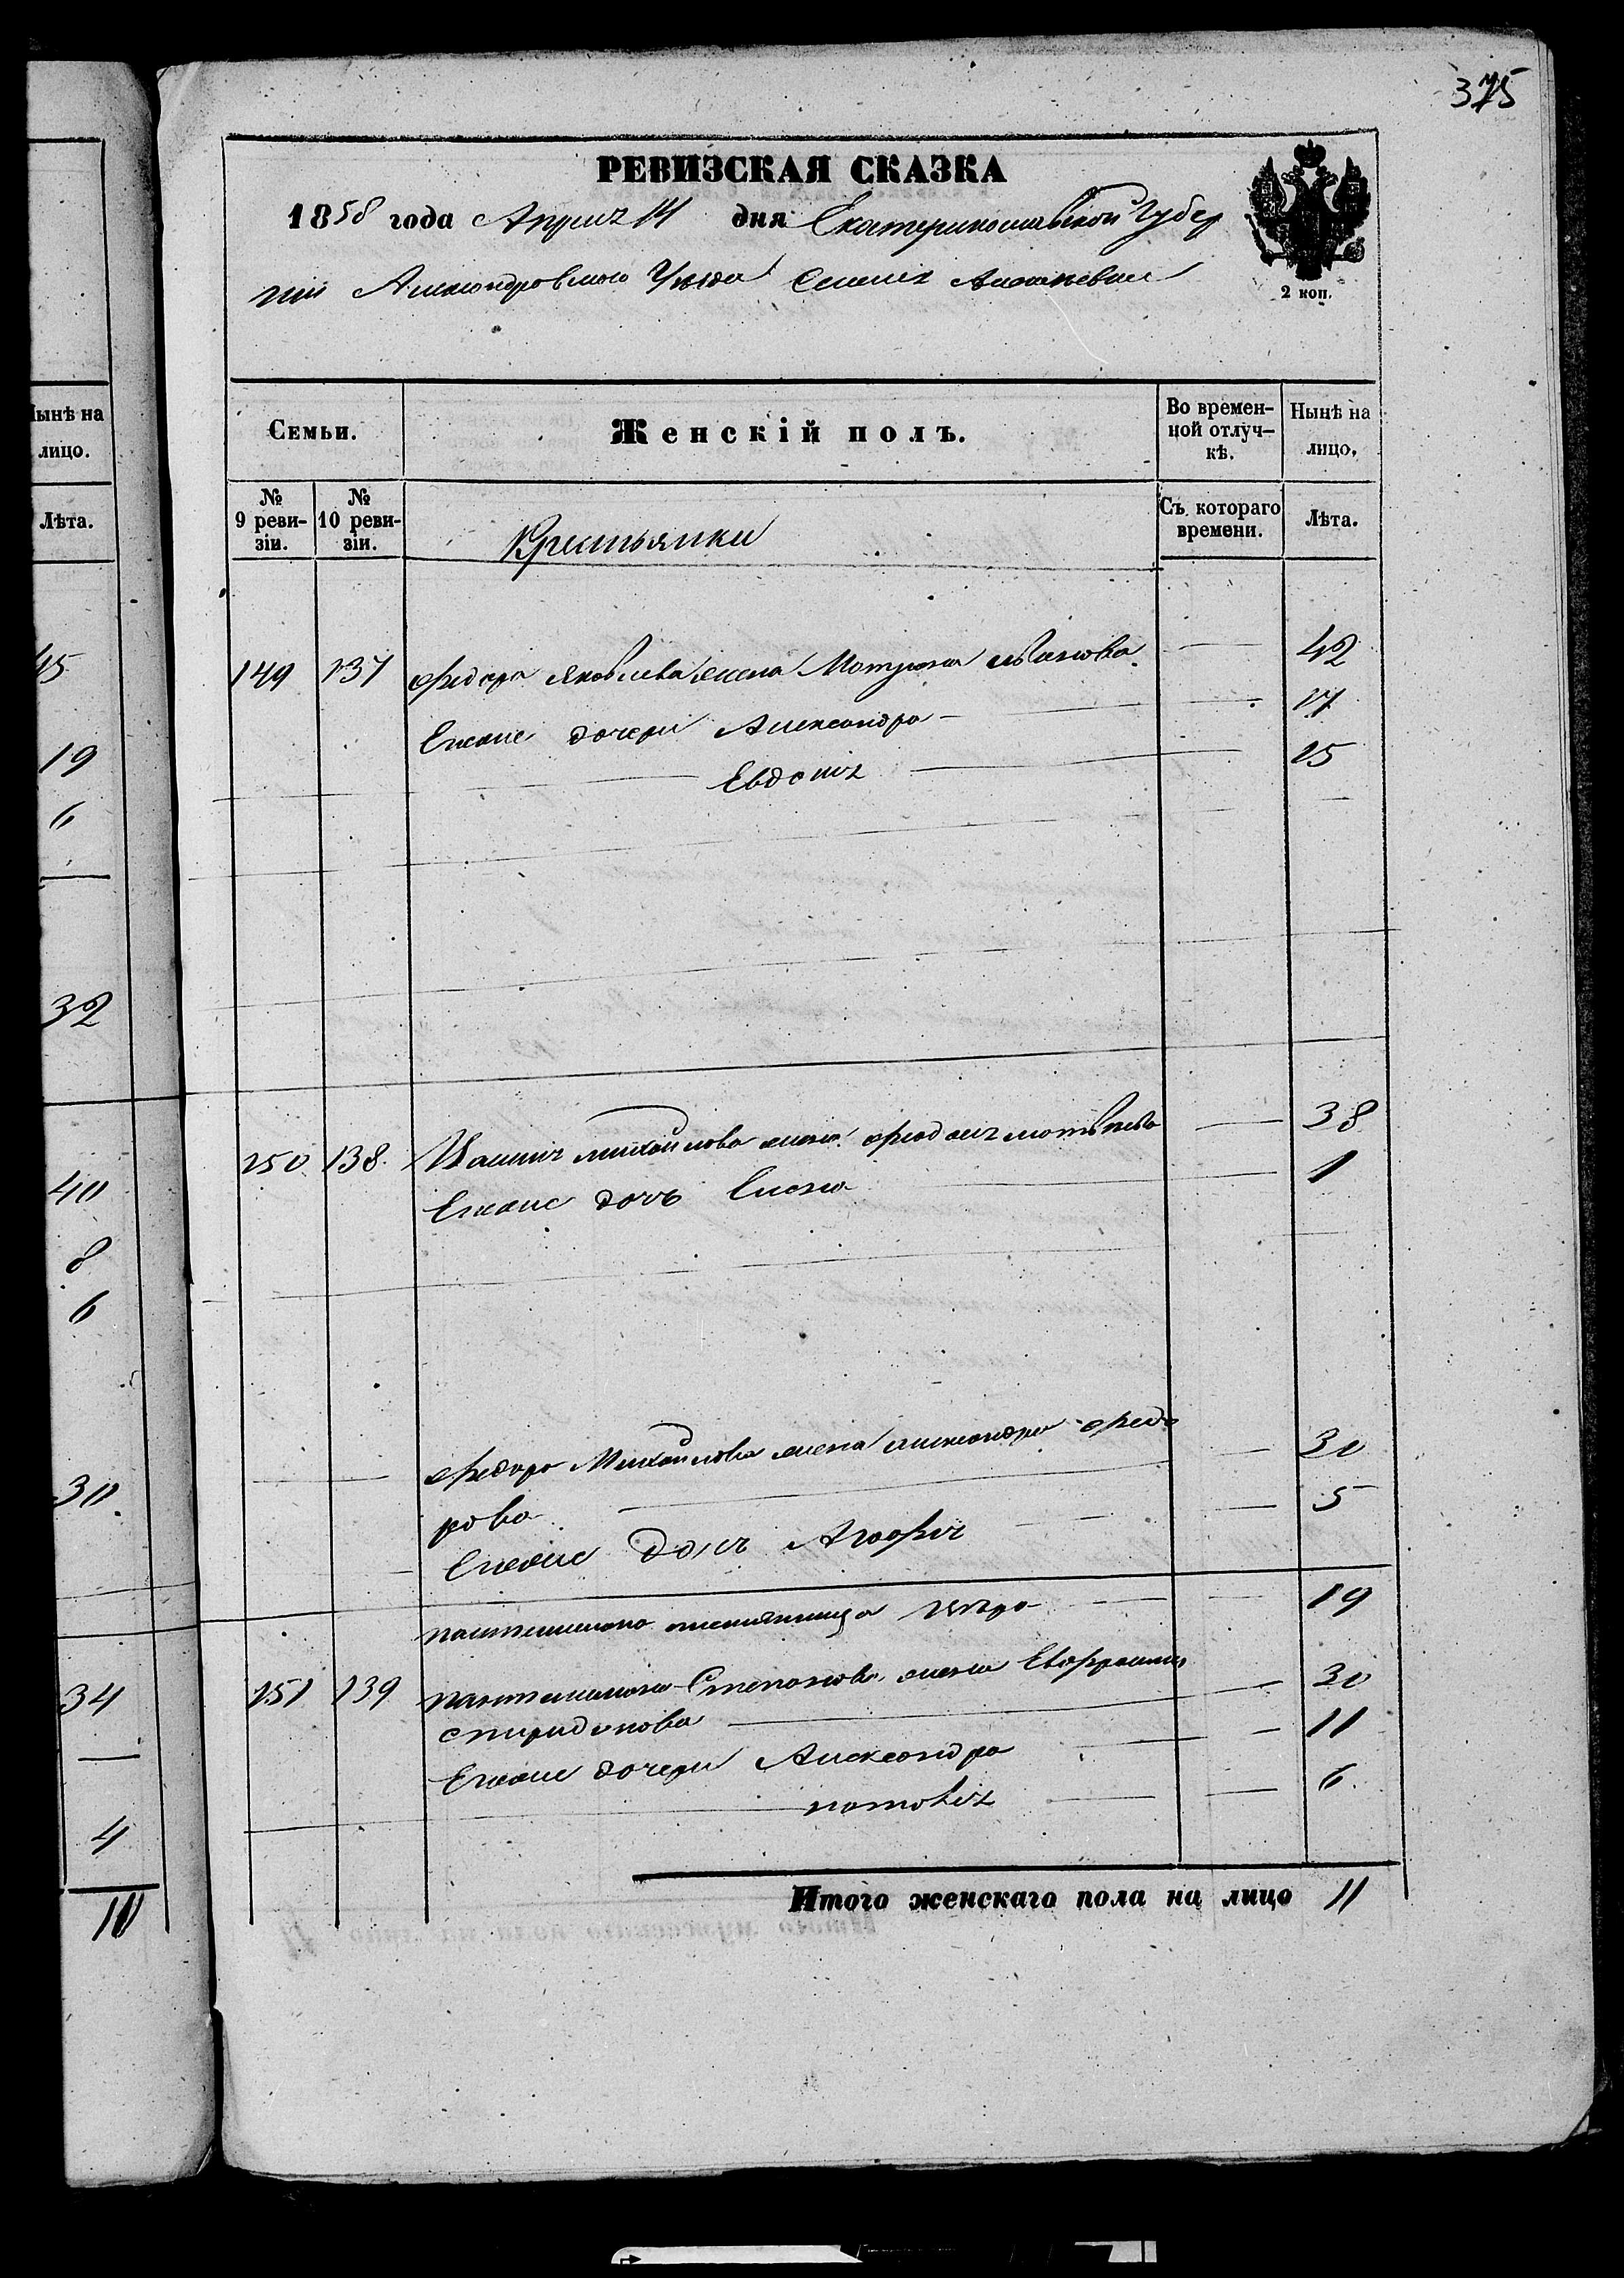 375
РЕВИЗСКАЯ СКАЗКА
1858 года Апреля 14 дня Екатеринославской Губер
нии Александровского Уезда Селения
2 коп.
Семьи.
Женскій полъ.
Во времен-
ной отлуч-
кѣ.
Нынѣ на
лицо.
№
9 реви-
зіи.
№
10 реви-
зіи.
Крестьянки
Съ котораго
времени.
Лѣта.
149 137 Федора Яковлева жена Матрона Иванова — 42
Егоже дочери Александра — 17
Евдокия — 15
150 138 Михайлова жена Матвеева — 38
Егоже дочь Елена 1
Федора Михайлова жена Александра Федо — 30
рова
Егоже дочь Агафия — 5
19
151 139 Пантелимона Степанова жена Евфросиния
Спиридонова — 30
Егоже дочери Александра — 11
6
Итого женскаго пола на лицо 11
Нынѣ на
лицо.
Лѣта.
45
19
6
32
40
8
6
30
34
4
10